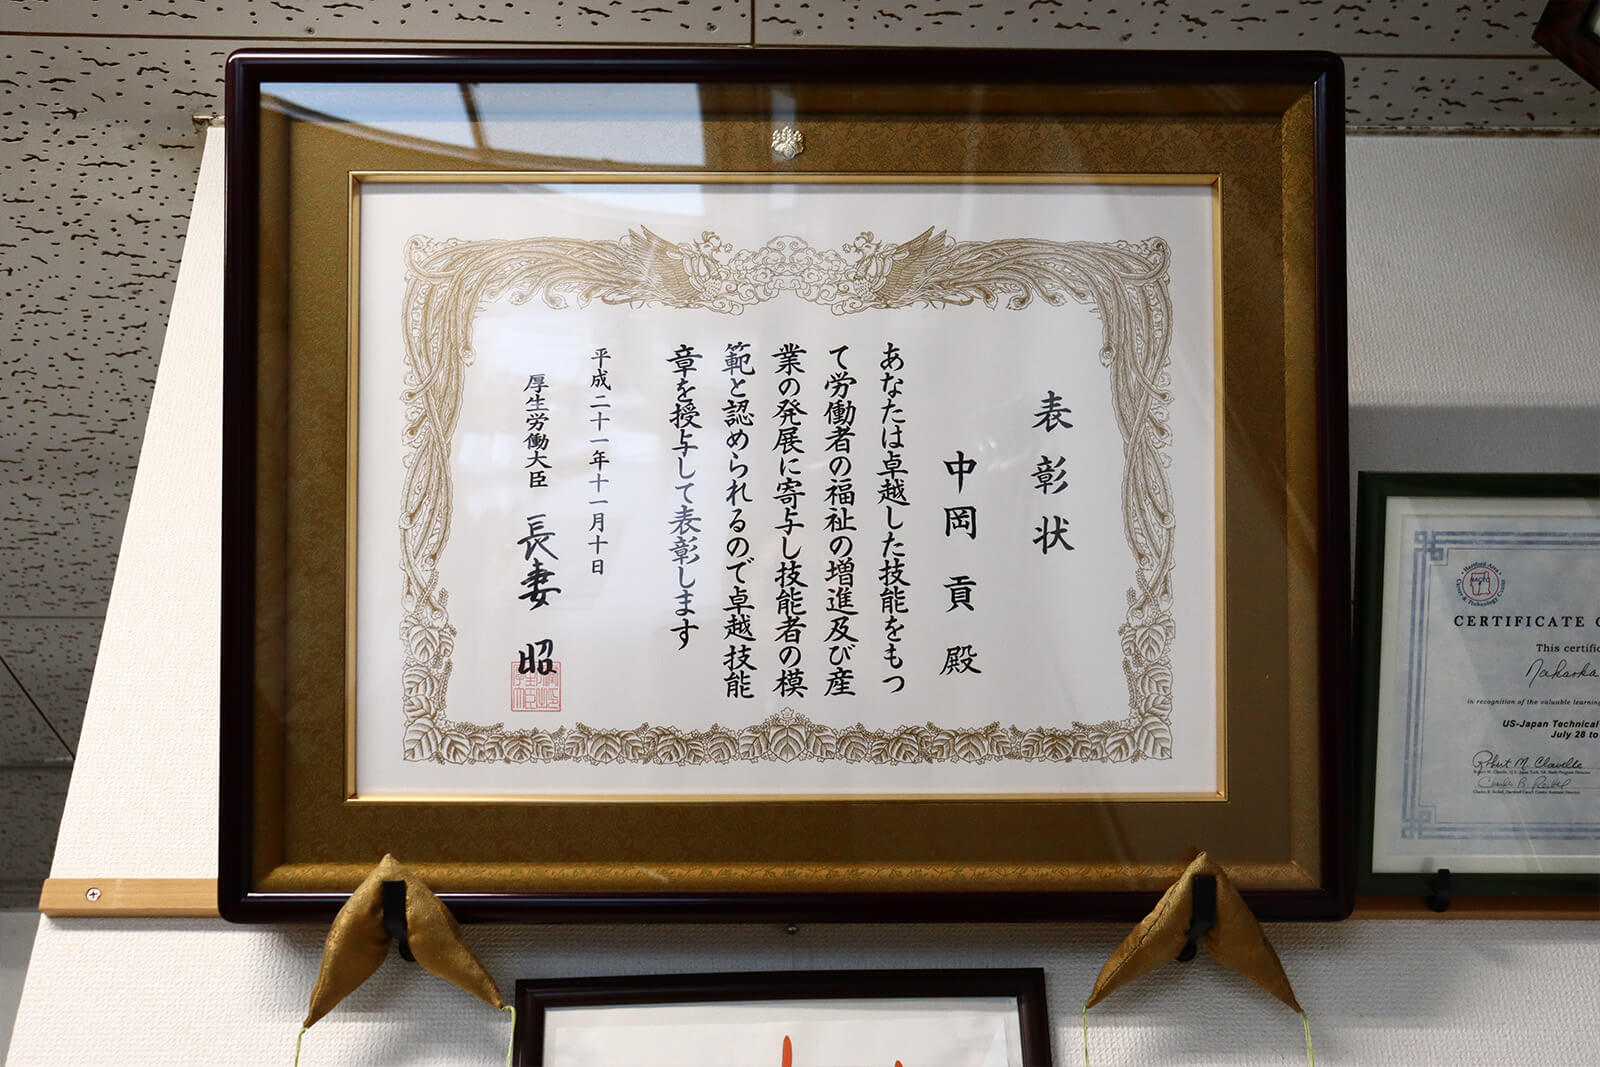 表彰状
中岡 貢 殿
あなたは卓越した技能をもっ
て労働者の福祉の増進及び産
業の発展に寄与し技能者の模
範と認められるので卓越技能
章を授与して表彰します
平成二十一年十一月十日
厚生労働大臣 長妻 昭
Hartford Area
Career & Technology Center
HACTC
CERTIFICATE
This certific
Nakaoka
in recognition of the valuable learning
US-Japan Technical
July 28 to
Robert M. Clavelle
Charles B. Reibel